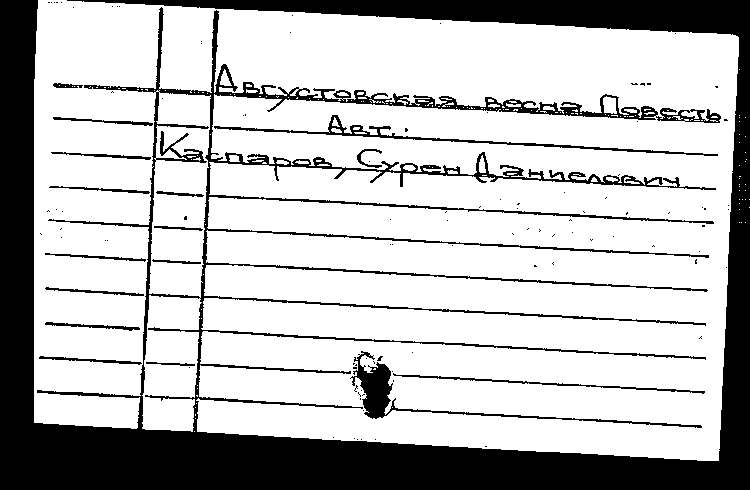 Августовская весна Повесть.
Авт.:
Каспаров, Сурен Даниелович